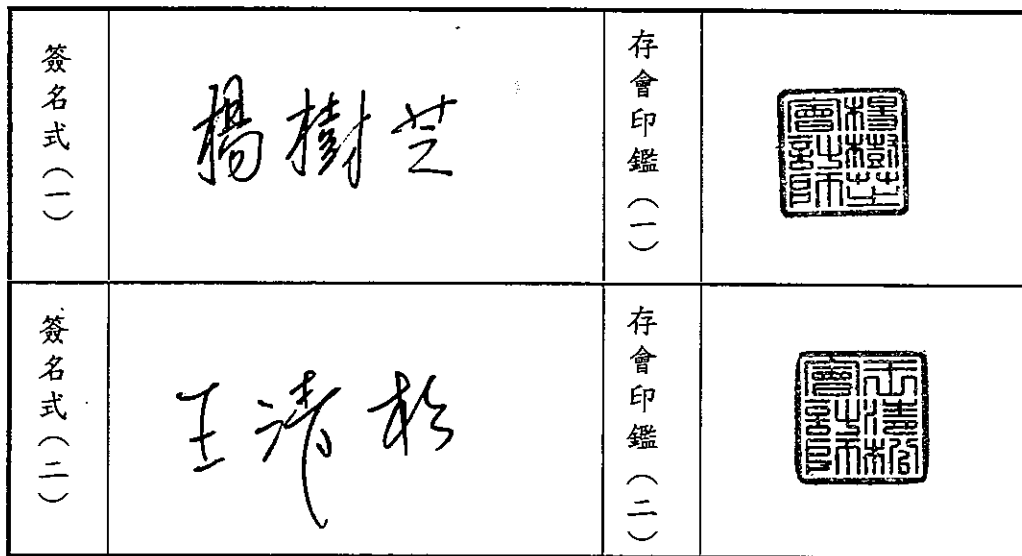 簽名式（一）
楊樹芝
存會印鑑（一）
楊樹芝會計師
簽名式（二）
王清松
存會印鑑（二）
王清松會計師